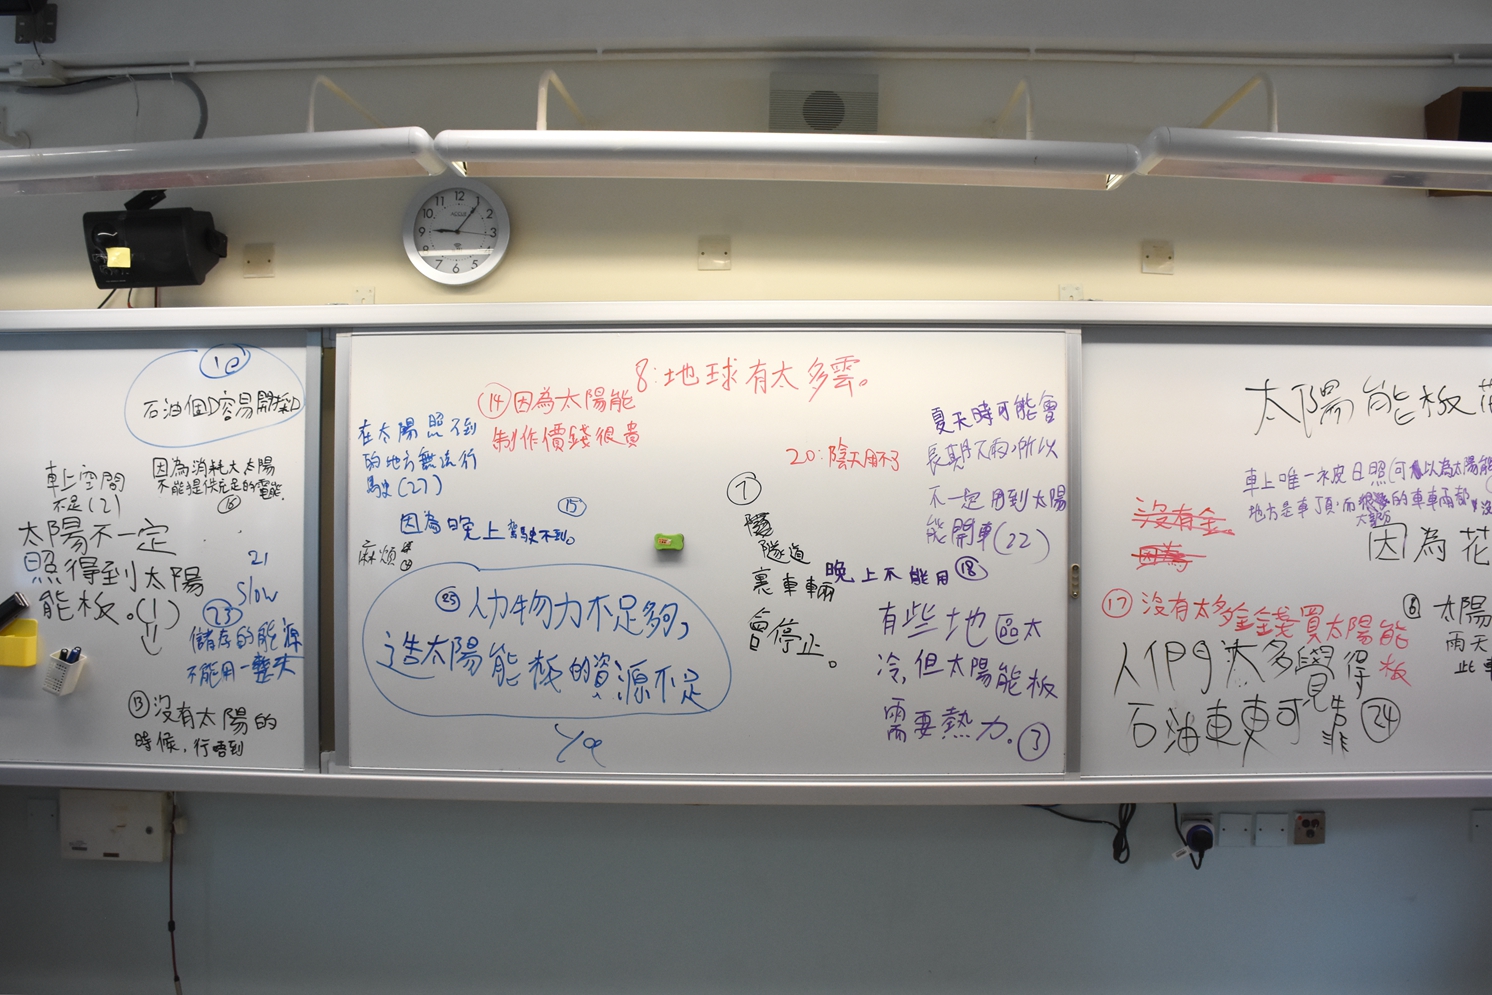 10
石油個D容易開採D
車上空間
不足(2)
因為消耗太太陽
不能提供充足的電能.
16
太陽不一定
照得到太陽
能板.(1)
21
slow
23
儲存的能源
不能用一整天
13 沒有太陽的
時候，行唔到
8:地球有太多雲。
14 因為太陽能
制作價錢很貴
在太陽照不到
的地方無法行
駛(27)
15
因為晚上駕駛不到。
麻煩
25 人力物力不足夠，
造太陽能板的資源不足
Ya
20:陰天用不了
7
隧道
裏車輛
會停止。
夏天時可能會
長期下雨,所以
不一定用到太陽
能開車(22)
晚上不能用 18
有些地區太
冷,但太陽能板
需要熱力。 3
太陽能板
車上唯一被日照(可以為太陽能
地方是車頂,而的車車兩都
因為花
沒有金
因為
17 沒有太多金錢買太陽能
板
人們太多覺得
石油車更可靠 24
6 太陽
雨天
此
12
11
10
9
8
7
6
5
4
3
2
1